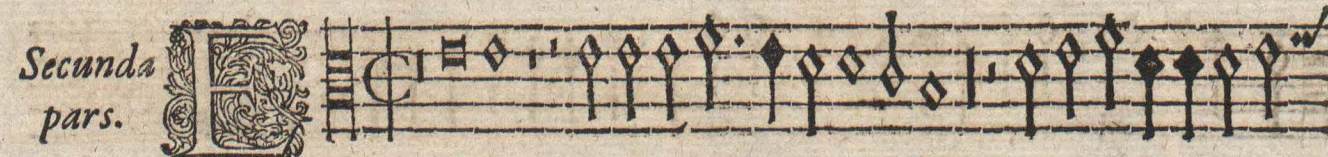 Secunda
pars.
E